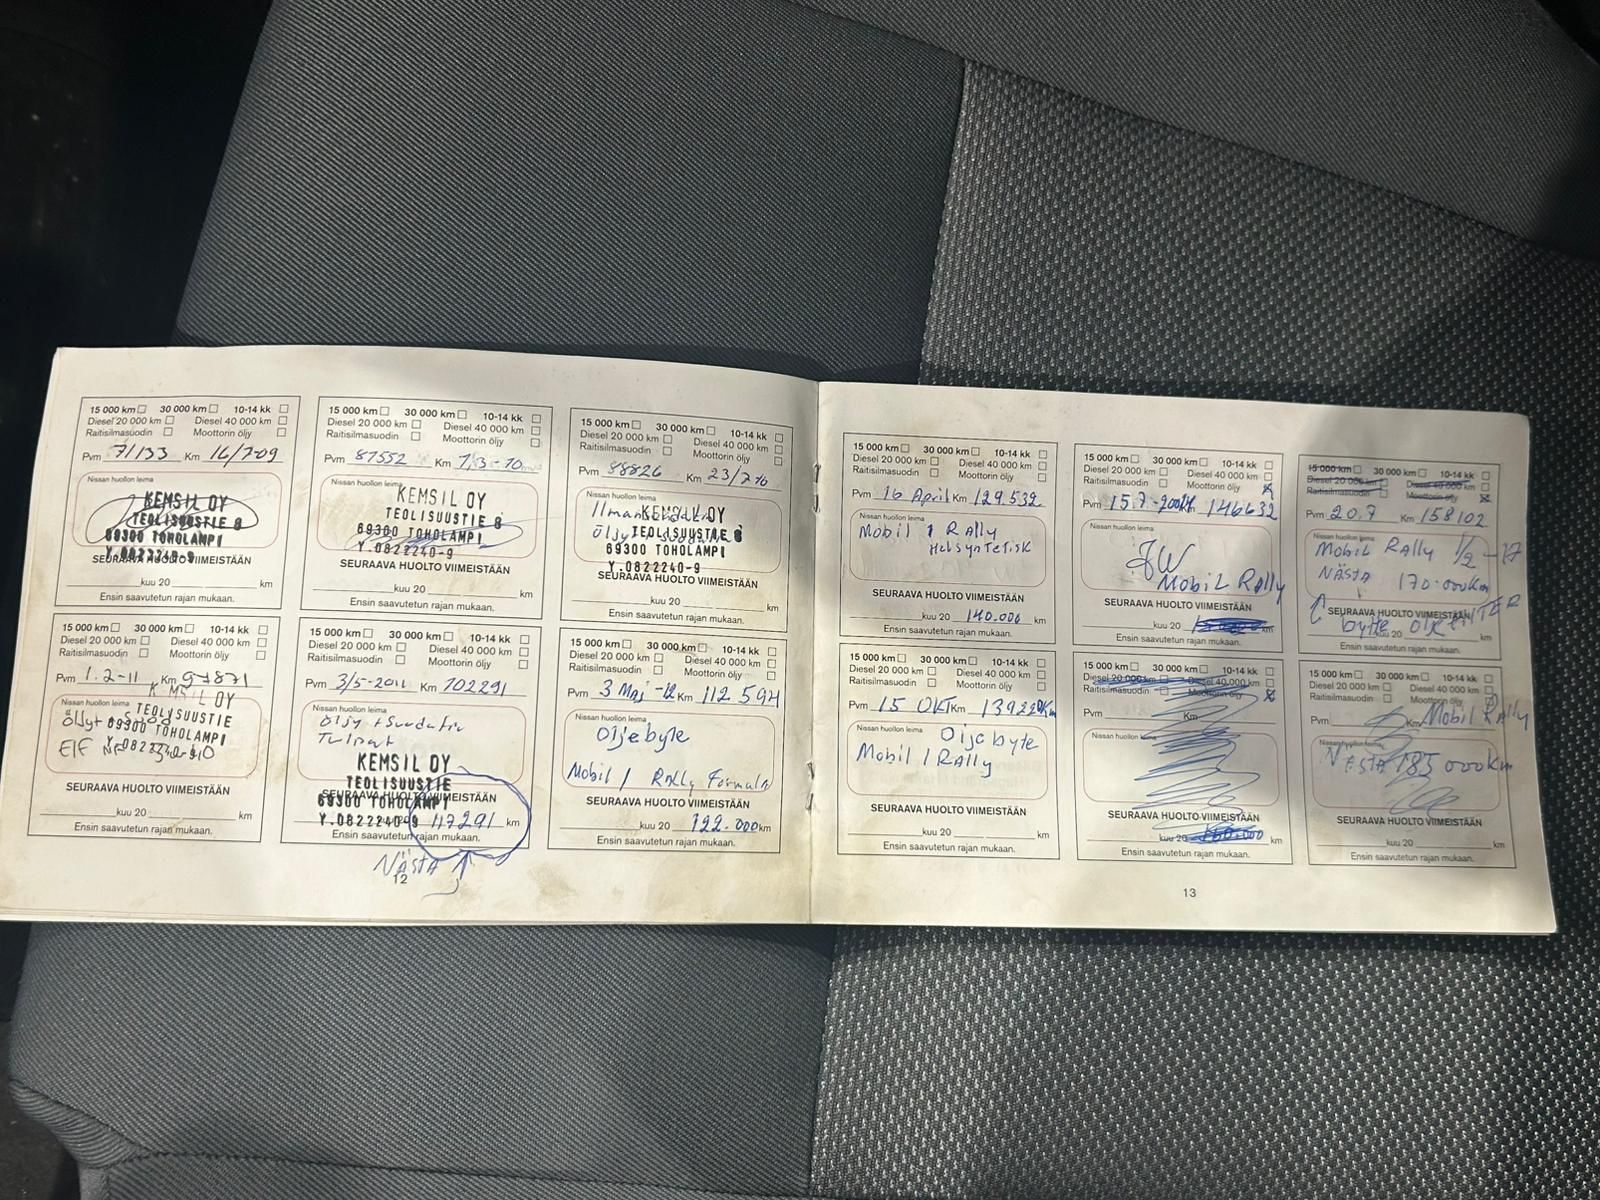 15 000 km 30 000 km 10-14 kk
Diesel 20 000 km Diesel 40 000 km
Raitisilmasuodin Moottorin öljy
Pvm 71133 Km 16/7-09
Nissan huollon leima
KEMSIL OY
TEOLISUUSTIE 8
69300 TOHOLAMPI
Y.0822240-9
SEURAAVA HUOLTO VIIMEISTÄÄN
kuu 20 km
Ensin saavutetun rajan mukaan.
15 000 km 30 000 km 10-14 kk
Diesel 20 000 km Diesel 40 000 km
Raitisilmasuodin Moottorin öljy
Pvm 87552 Km 1.3-10
Nissan huollon leima
KEMSIL OY
TEOLISUUSTIE 8
69300 TOHOLAMPI
Y.0822240-9
SEURAAVA HUOLTO VIIMEISTÄÄN
kuu 20 km
Ensin saavutetun rajan mukaan.
15 000 km 30 000 km 10-14 kk
Diesel 20 000 km Diesel 40 000 km
Raitisilmasuodin Moottorin öljy
Pvm 88826 Km 23/7-10
Nissan huollon leima
KEMSIL OY
TEOLISUUSTIE 8
69300 TOHOLAMPI
Y.0822240-9
SEURAAVA HUOLTO VIIMEISTÄÄN
kuu 20 km
Ensin saavutetun rajan mukaan.
15 000 km 30 000 km 10-14 kk
Diesel 20 000 km Diesel 40 000 km
Raitisilmasuodin Moottorin öljy
Pvm 1.2-11 Km
Nissan huollon leima
KEMSIL OY
TEOLISUUSTIE
69300 TOHOLAMPI
Öljyt
Elf
SEURAAVA HUOLTO VIIMEISTÄÄN
kuu 20 km
Ensin saavutetun rajan mukaan.
15 000 km 30 000 km 10-14 kk
Diesel 20 000 km Diesel 40 000 km
Raitisilmasuodin Moottorin öljy
Pvm 3/5-2011 Km 102291
Nissan huollon leima
Öljy + Suodatin
Tulpat
KEMSIL OY
TEOLISUUSTIE
69300 TOHOLAMPI
Y.0822240-9
SEURAAVA HUOLTO VIIMEISTÄÄN
117291 km
Ensin saavutetun rajan mukaan.
NÄSTA
12
15 000 km 30 000 km 10-14 kk
Diesel 20 000 km Diesel 40 000 km
Raitisilmasuodin Moottorin öljy
Pvm 3 Maj -12 Km 112 594
Nissan huollon leima
Oljebyte
Mobil 1 Rally Formula
SEURAAVA HUOLTO VIIMEISTÄÄN
kuu 20 122.000 km
Ensin saavutetun rajan mukaan.
15 000 km 30 000 km 10-14 kk
Diesel 20 000 km Diesel 40 000 km
Raitisilmasuodin Moottorin öljy
Pvm 16 April Km 129.532
Nissan huollon leima
Mobil 1 Rally
Helsyntetisk
SEURAAVA HUOLTO VIIMEISTÄÄN
kuu 20 140.000 km
Ensin saavutetun rajan mukaan.
15 000 km 30 000 km 10-14 kk
Diesel 20 000 km Diesel 40 000 km
Raitisilmasuodin Moottorin öljy
Pvm 15.7-2014 Km 146632
Nissan huollon leima
JW
Mobil Rally
SEURAAVA HUOLTO VIIMEISTÄÄN
kuu 20 km
Ensin saavutetun rajan mukaan.
15 000 km 30 000 km 10-14 kk
Diesel 20 000 km Diesel 40 000 km
Raitisilmasuodin Moottorin öljy
Pvm 20.7 Km 158102
Nissan huollon leima
Mobil Rally 1/2 -17
NÄSTA 170.000km
SEURAAVA HUOLTO VIIMEISTÄÄN
byte
kuu 20 km
Ensin saavutetun rajan mukaan.
15 000 km 30 000 km 10-14 kk
Diesel 20 000 km Diesel 40 000 km
Raitisilmasuodin Moottorin öljy
Pvm 15 OKT Km 139220Km
Nissan huollon leima
Oljebyte
Mobil 1 Rally
SEURAAVA HUOLTO VIIMEISTÄÄN
kuu 20 km
Ensin saavutetun rajan mukaan.
15 000 km 30 000 km 10-14 kk
Diesel 20 000 km Diesel 40 000 km
Raitisilmasuodin Moottorin öljy
Pvm Km
Nissan huollon leima
SEURAAVA HUOLTO VIIMEISTÄÄN
kuu 20 km
Ensin saavutetun rajan mukaan.
15 000 km 30 000 km 10-14 kk
Diesel 20 000 km Diesel 40 000 km
Raitisilmasuodin Moottorin öljy
Pvm Km Mobil Rally
Nissan huollon leima
NÄSTA 185 000km
SEURAAVA HUOLTO VIIMEISTÄÄN
kuu 20 km
Ensin saavutetun rajan mukaan.
13